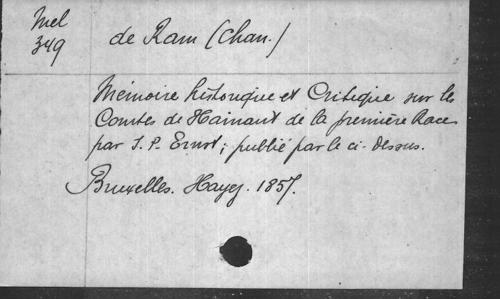 Mel
349
de Ram (Chan.)
Mémoire historique et Critique sur les
Comtes de Hainaut de la première Race
par S. P. Ernst; publié par le ci-dessus.
Bruxelles. Hayez. 1857.